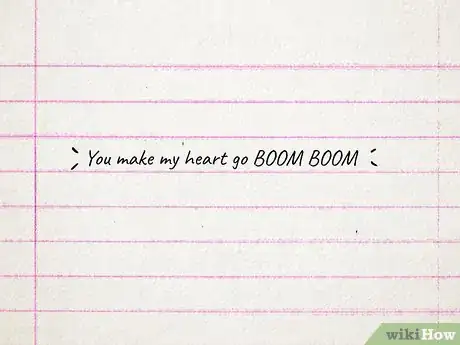 You make my heart go BOOM BOOM
wikiHow